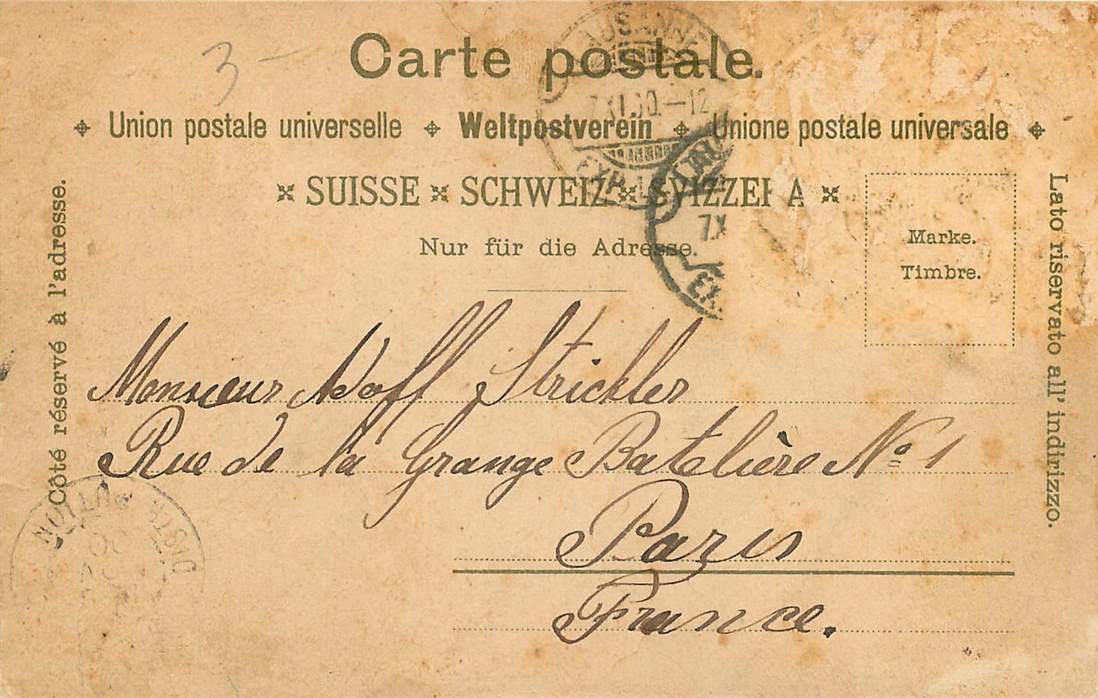 3-
Carte postale.
Union postale universelle Weltpostverein Unione postale universale
SUISSE SCHWEIZ SVIZZERA
Nur für die Adresse.
Marke.
Timbre.
Côté réservé à l'adresse.
Lato riservato all' indirizzo.
LAUSANNE
7.XI.00.-12
EXP. L
LAU
7.X
EX
Monsieur Adolf Strickler
Rue de la Grange Batelière No 1
Paris
France.
DISTRIBUTION
00